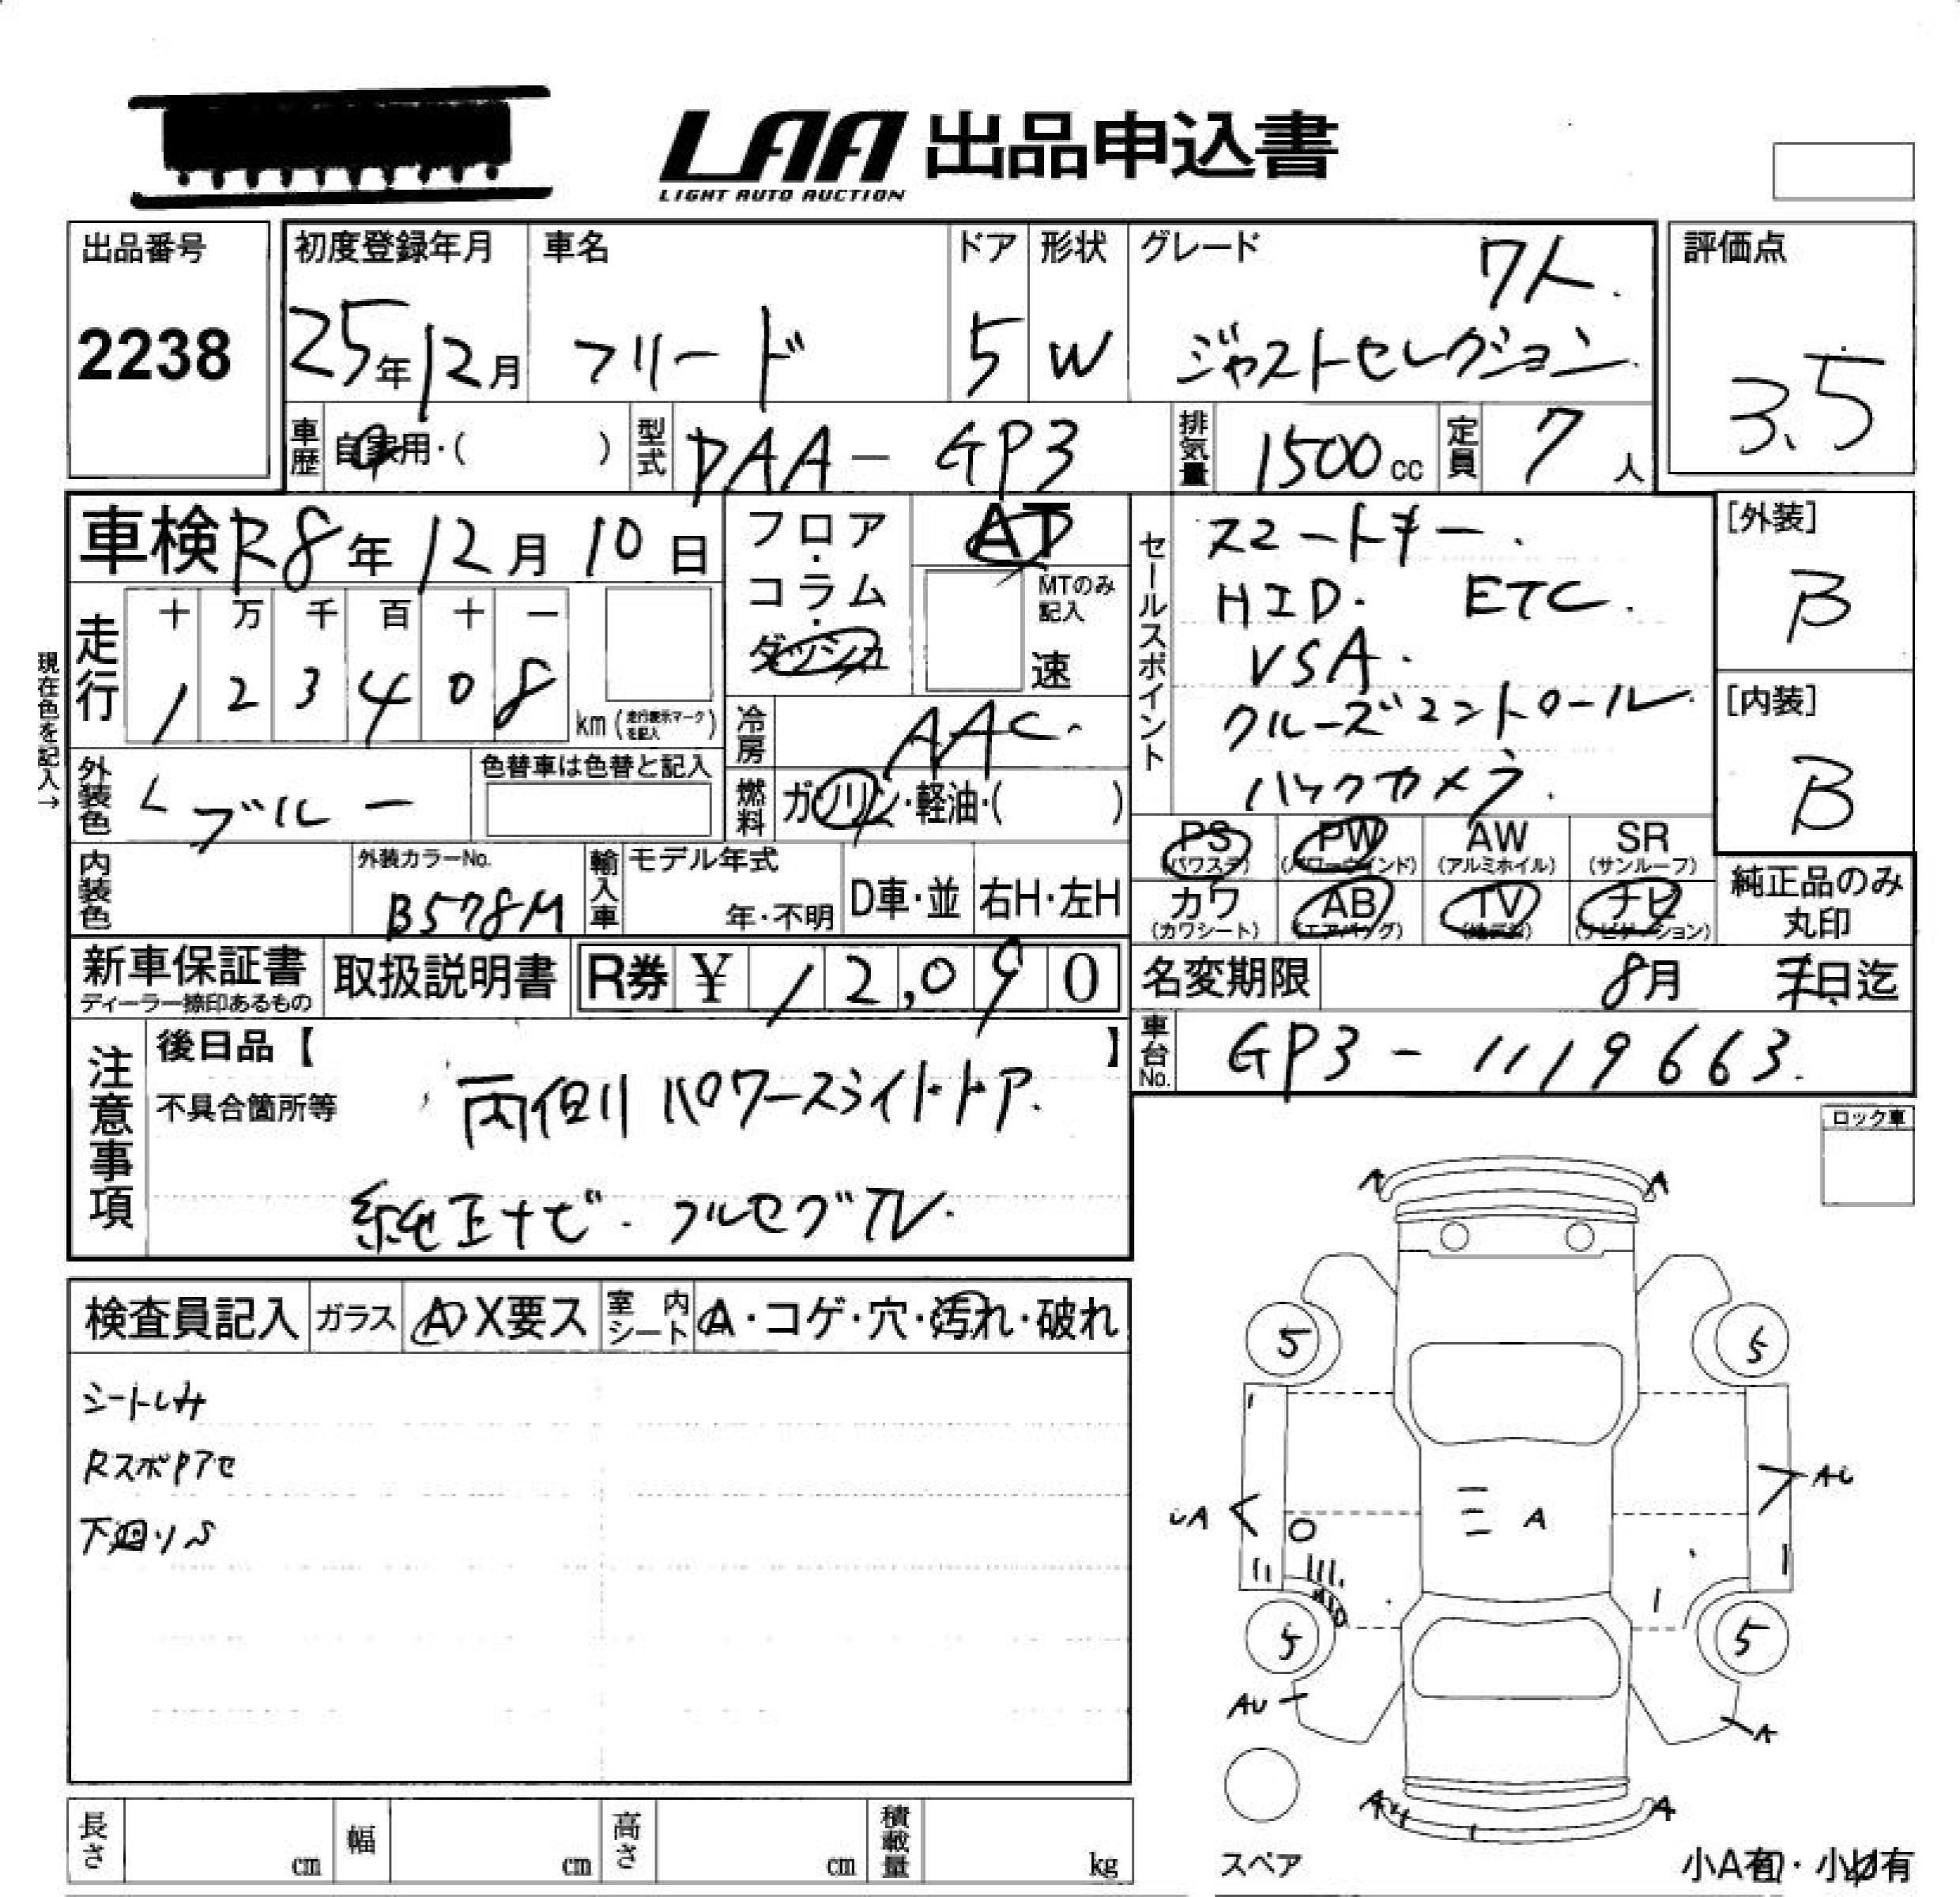 LAA 出品申込書
LIGHT AUTO AUCTION
出品番号
2238
初度登録年月
25年12月
車名
フリード
ドア
5
形状
W
グレード
7人.
ジャストセレクション.
評価点
3.5
車歴
自家用・( )
型式
DAA-GP3
排気量
1500cc
定員
7人
車検 R8年12月10日
フロア・コラム・ダッシュ
AT
MTのみ記入
速
セールスポイント
スマートキー.
HID. ETC.
VSA.
クルーズコントロール.
バックカメラ.
[外装]
B
[内装]
B
現在色を記入→
走行
十 万 千 百 十 一
1 2 3 4 0 8
km(走行表示マークを記入)
冷房
AAC.
外装色
ブルー
色替車は色替と記入
燃料
ガソリン・軽油・( )
PS (パワステ)
PW (パワーウインド)
AW (アルミホイル)
SR (サンルーフ)
カワ (カワシート)
AB (エアバッグ)
TV
ナビ (ナビゲーション)
純正品のみ丸印
内装色
外装カラーNo.
B578M
輸入車
モデル年式
年・不明
D車・並
右H・左H
新車保証書
ディーラー捺印あるもの
取扱説明書
R券 ¥12,090
名変期限
8月 末日迄
車台No.
GP3-1119663.
注意事項
後日品【 】
不具合箇所等
両側パワースライドドア.
純正ナビ. フルセグTV.
ロック車
検査員記入
ガラス
A・X要ス
室内シート
A・コゲ・穴・汚れ・破れ
シートしみ
RスポPアセ
下廻りS
A A
5 5
AU
UA
A
5 5
AU
A
A A
スペア
小A有・小U有
長さ cm
幅 cm
高さ cm
積載量 kg